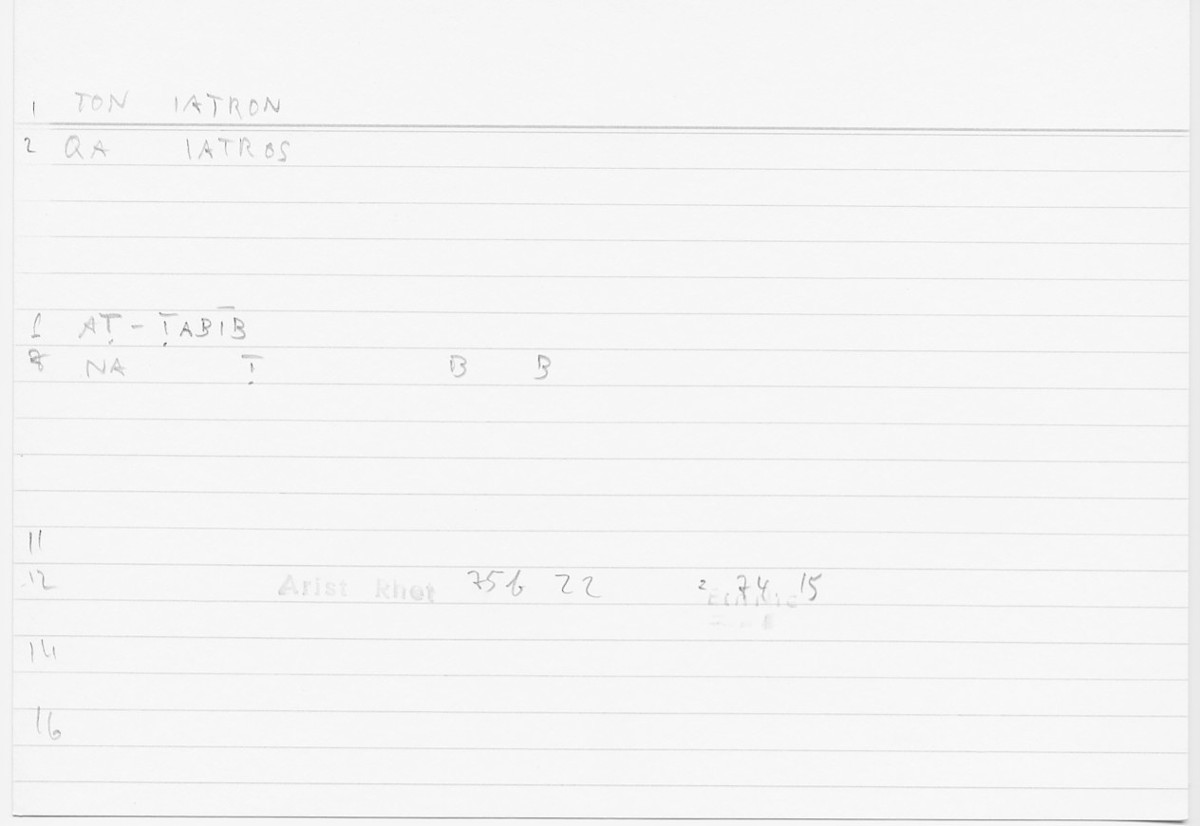 1 TON IATRON
2 QA IATROS
1 AṬ-ṬABĪB
8 NA Ṭ B B
11
12 Arist Rhet 75b 22 2 74 15
14
16